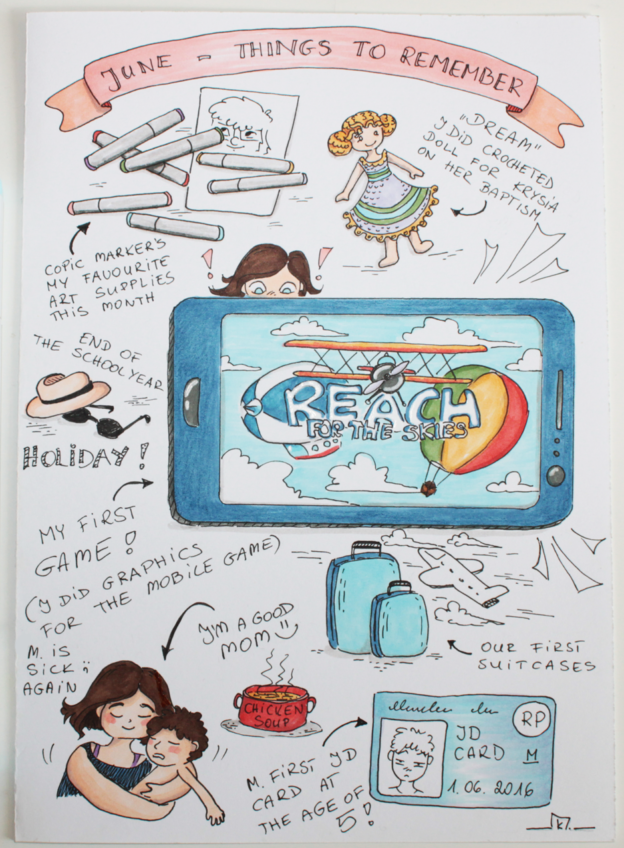 JUNE - THINGS TO REMEMBER
COPIC MARKER'S
MY FAVOURITE
ART SUPPLIES
THIS MONTH
"DREAM"
J DID CROCHETED
DOLL FOR KRYSIA
ON HER BAPTISM
END OF
THE SCHOOLYEAR
HOLIDAY!
REACH
FOR THE SKIES
MY FIRST
GAME!
(J DID GRAPHICS
FOR THE MOBILE GAME)
OUR FIRST
SUITCASES
M. IS
SICK
AGAIN
J'M A GOOD
MOM
CHICKEN
SOUP
M. FIRST JD
CARD AT
THE AGE OF
5!
RP
JD
CARD M
1.06.2016